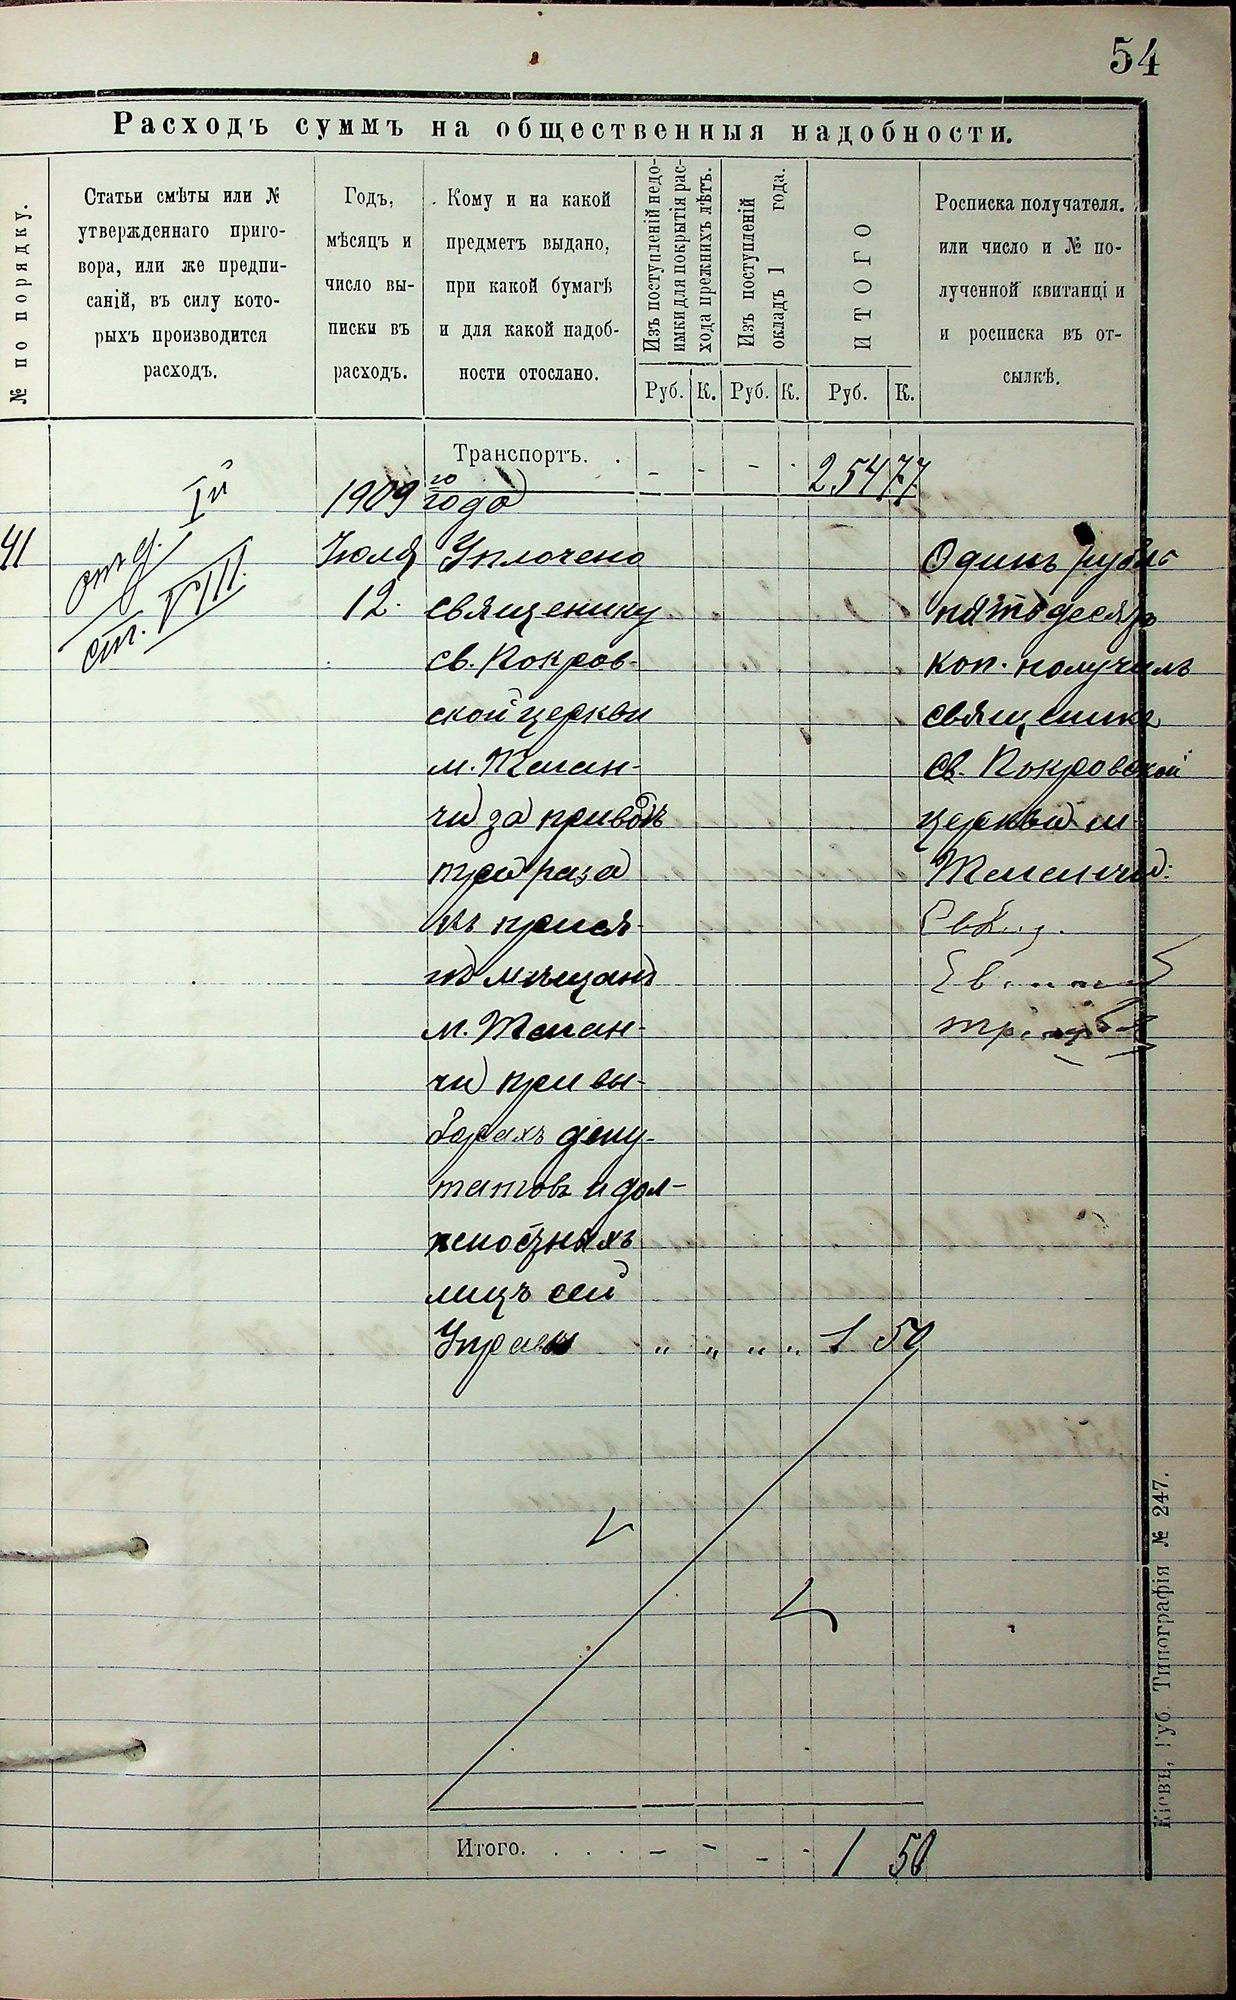 54
Расходъ суммъ на общественныя надобности.
№ по порядку.
Статьи смѣты или №
утвержденнаго приго-
вора, или же предпи-
саній, въ силу кото-
рыхъ производится
расходъ.
Годъ,
мѣсяцъ и
число вы-
писки въ
расходъ.
Кому и на какой
предметъ выдано,
при какой бумагѣ
и для какой надоб-
ности отослано.
Изъ поступленій недо-
имки для покрытія рас-
хода прежнихъ лѣтъ.
Изъ поступленій
окладъ 1 года.
ИТОГО
Росписка получателя.
или число и № по-
лученной квитанці и
и росписка въ от-
сылкѣ.
Руб. К. Руб. К. Руб. К.
Транспортъ. . - - - . 254 77
1909 го года
41
отд. Iй
ст. VIII.
Іюля
12.
Уплочено
священику
св. Покров-
ской церкви
м. Таган-
чи за приводъ
три раза
къ прися-
гѣ мѣщанъ
м. Таган-
чи при вы-
борахъ депу-
татовъ и дол-
жностныхъ
лицъ сей
Управы " " " " 1 50
Одинъ рубль
пятьдесятъ
коп. получилъ
священикъ
Св. Покровской
церкви м.
Таганчи:
Итого. . . . . - - - - 1 50
Кіевъ, Губ. Типографія № 247.